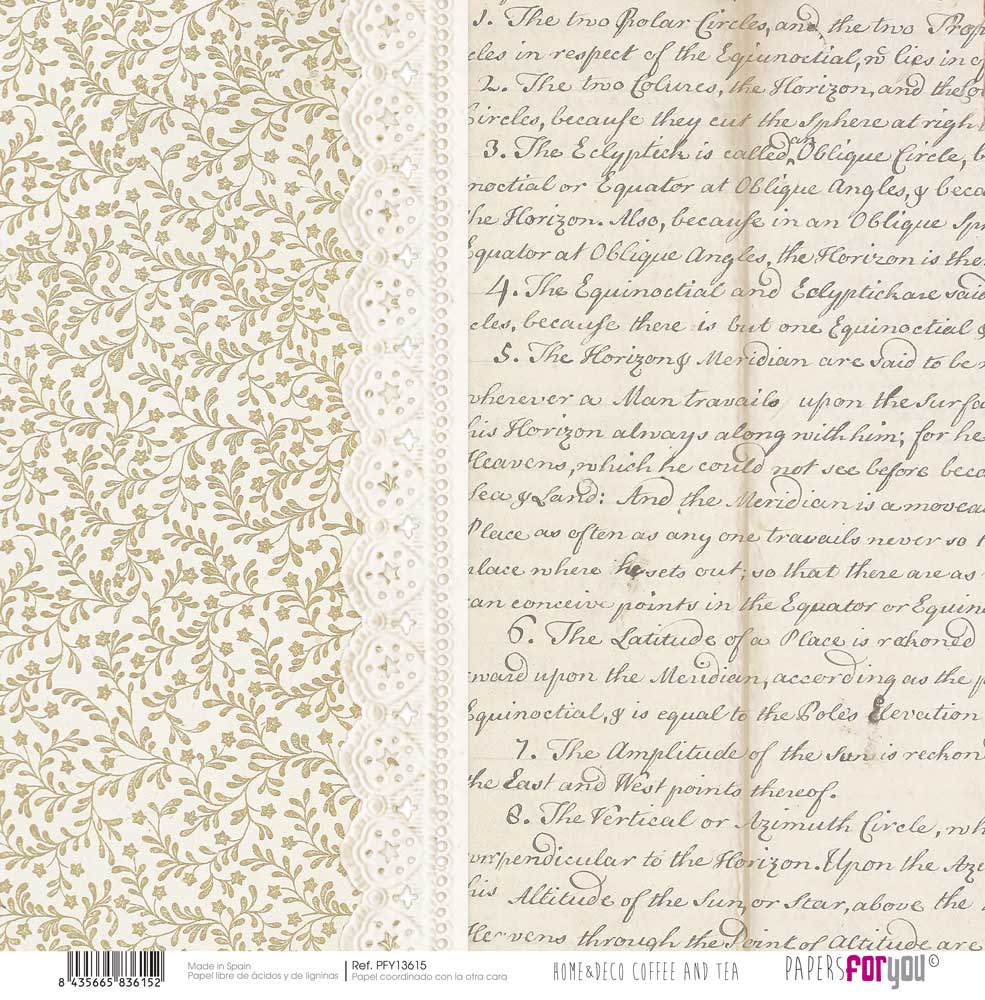 1. The two Polar Circles, and, the two Trop
cles in respect of the Equinoctial, wͨ lies in
2. The two Colures, the Horizon, and the
Circles, because they cut the Sphere at righ
3. The Eclyptick is called an Oblique Circle, b
noctial or Equator at Oblique Angles, & beca
the Horizon. Also, because in an Oblique Sp
Equator at Oblique Angles, the Horizon is the
4. The Equinoctial and Eclyptick are said
cles, because there is but one Equinoctial &
5. The Horizon & Meridian are said to be
wherever a Man travails upon the Surfa
his Horizon always along with him; for he
Heavens, which he could not see before beca
Sea & Land: And the Meridian is a movea
Place as often as any one travails never so
place where he sets out; so that there are as
can conceive points in the Equator or Equin
6. The Latitude of a Place is rekoned
ward upon the Meridian, according as the p
Equinoctial, & is equal to the Pole's Elevation
7. The Amplitude of the Sun is reckon
the East and West points thereof.
8. The Vertical or Azimuth Circle, wh
perpendicular to the Horizon. Upon the Azi
his Altitude of the Sun, or Star, above the
Heavens through the Point of Altitude are
8 435665 836152
Made in Spain
Papel libre de ácidos y de ligninas
Ref. PFY13615
Papel coordinado con la otra cara
HOME&DECO COFFEE AND TEA
PAPERSFORyou©